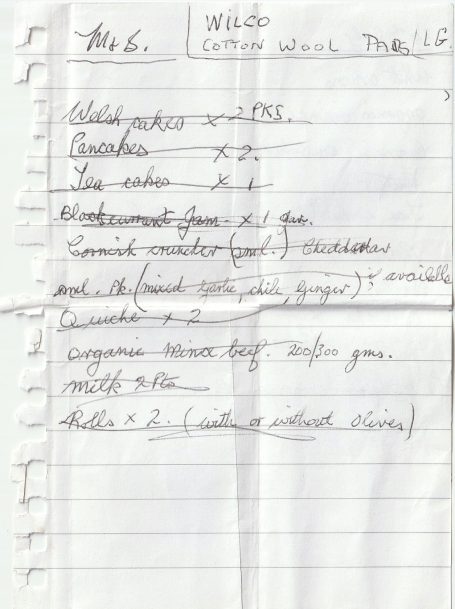 M&S.
WILCO
COTTON WOOL PADS/LG.
Welsh cakes x 2 PKS.
Pancakes x 2.
Tea cakes x 1
Blackcurrant Jam x 1 jar.
Cornish cruncher (sml.) Cheddar
sml. pk. (mixed garlic, chile, ginger) if available
Quiche x 2
Organic mince beef. 200/300 gms.
Milk 2 Pts
Rolls x 2. (with or without olives)